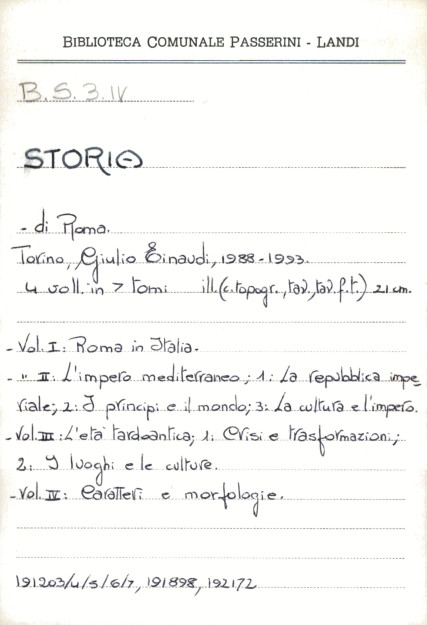 BIBLIOTECA COMUNALE PASSERINI - LANDI
B.S.3.IV
STORIA
- di Roma.
Torino, Giulio Einaudi, 1988-1993.
4 voll. in 7 tomi ill. (c. topogr., tav., tav. f.t.) 21 cm.
- Vol. I: Roma in Italia.
- " II: L'impero mediterraneo; 1: La repubblica impe
riale; 2: I principi e il mondo; 3: La cultura e l'impero.
- Vol. III: L'età tardoantica; 1: Crisi e trasformazioni;
2: I luoghi e le culture.
- Vol. IV: Caratteri e morfologie.
191203/4/5/6/7, 191898, 192172